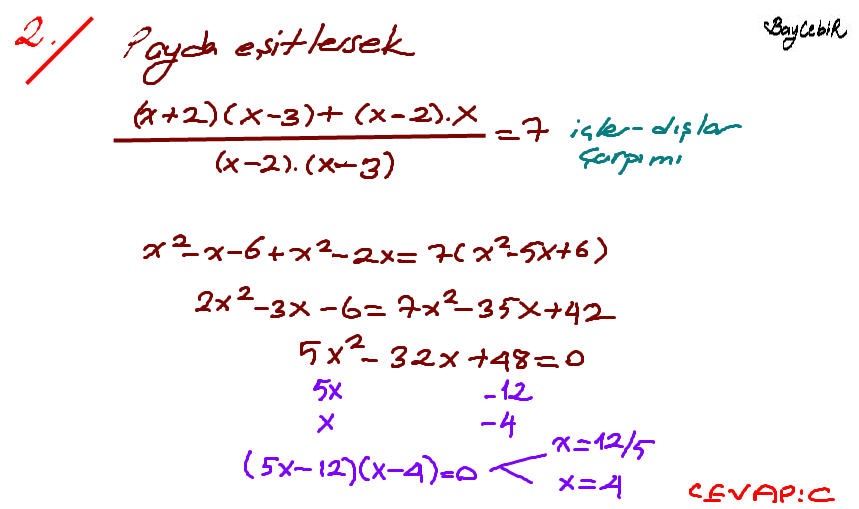 2.) Payda eşitlersek
BAYCEBİR
(x+2)(x-3)+(x-2).x
/(x-2).(x-3) = 7 içler-dışlar
çarpımı
x²-x-6+x²-2x=7(x²-5x+6)
2x²-3x-6=7x²-35x+42
5x²-32x+48=0
5x -12
x -4
(5x-12)(x-4)=0 x=12/5
x=4
CEVAP:C